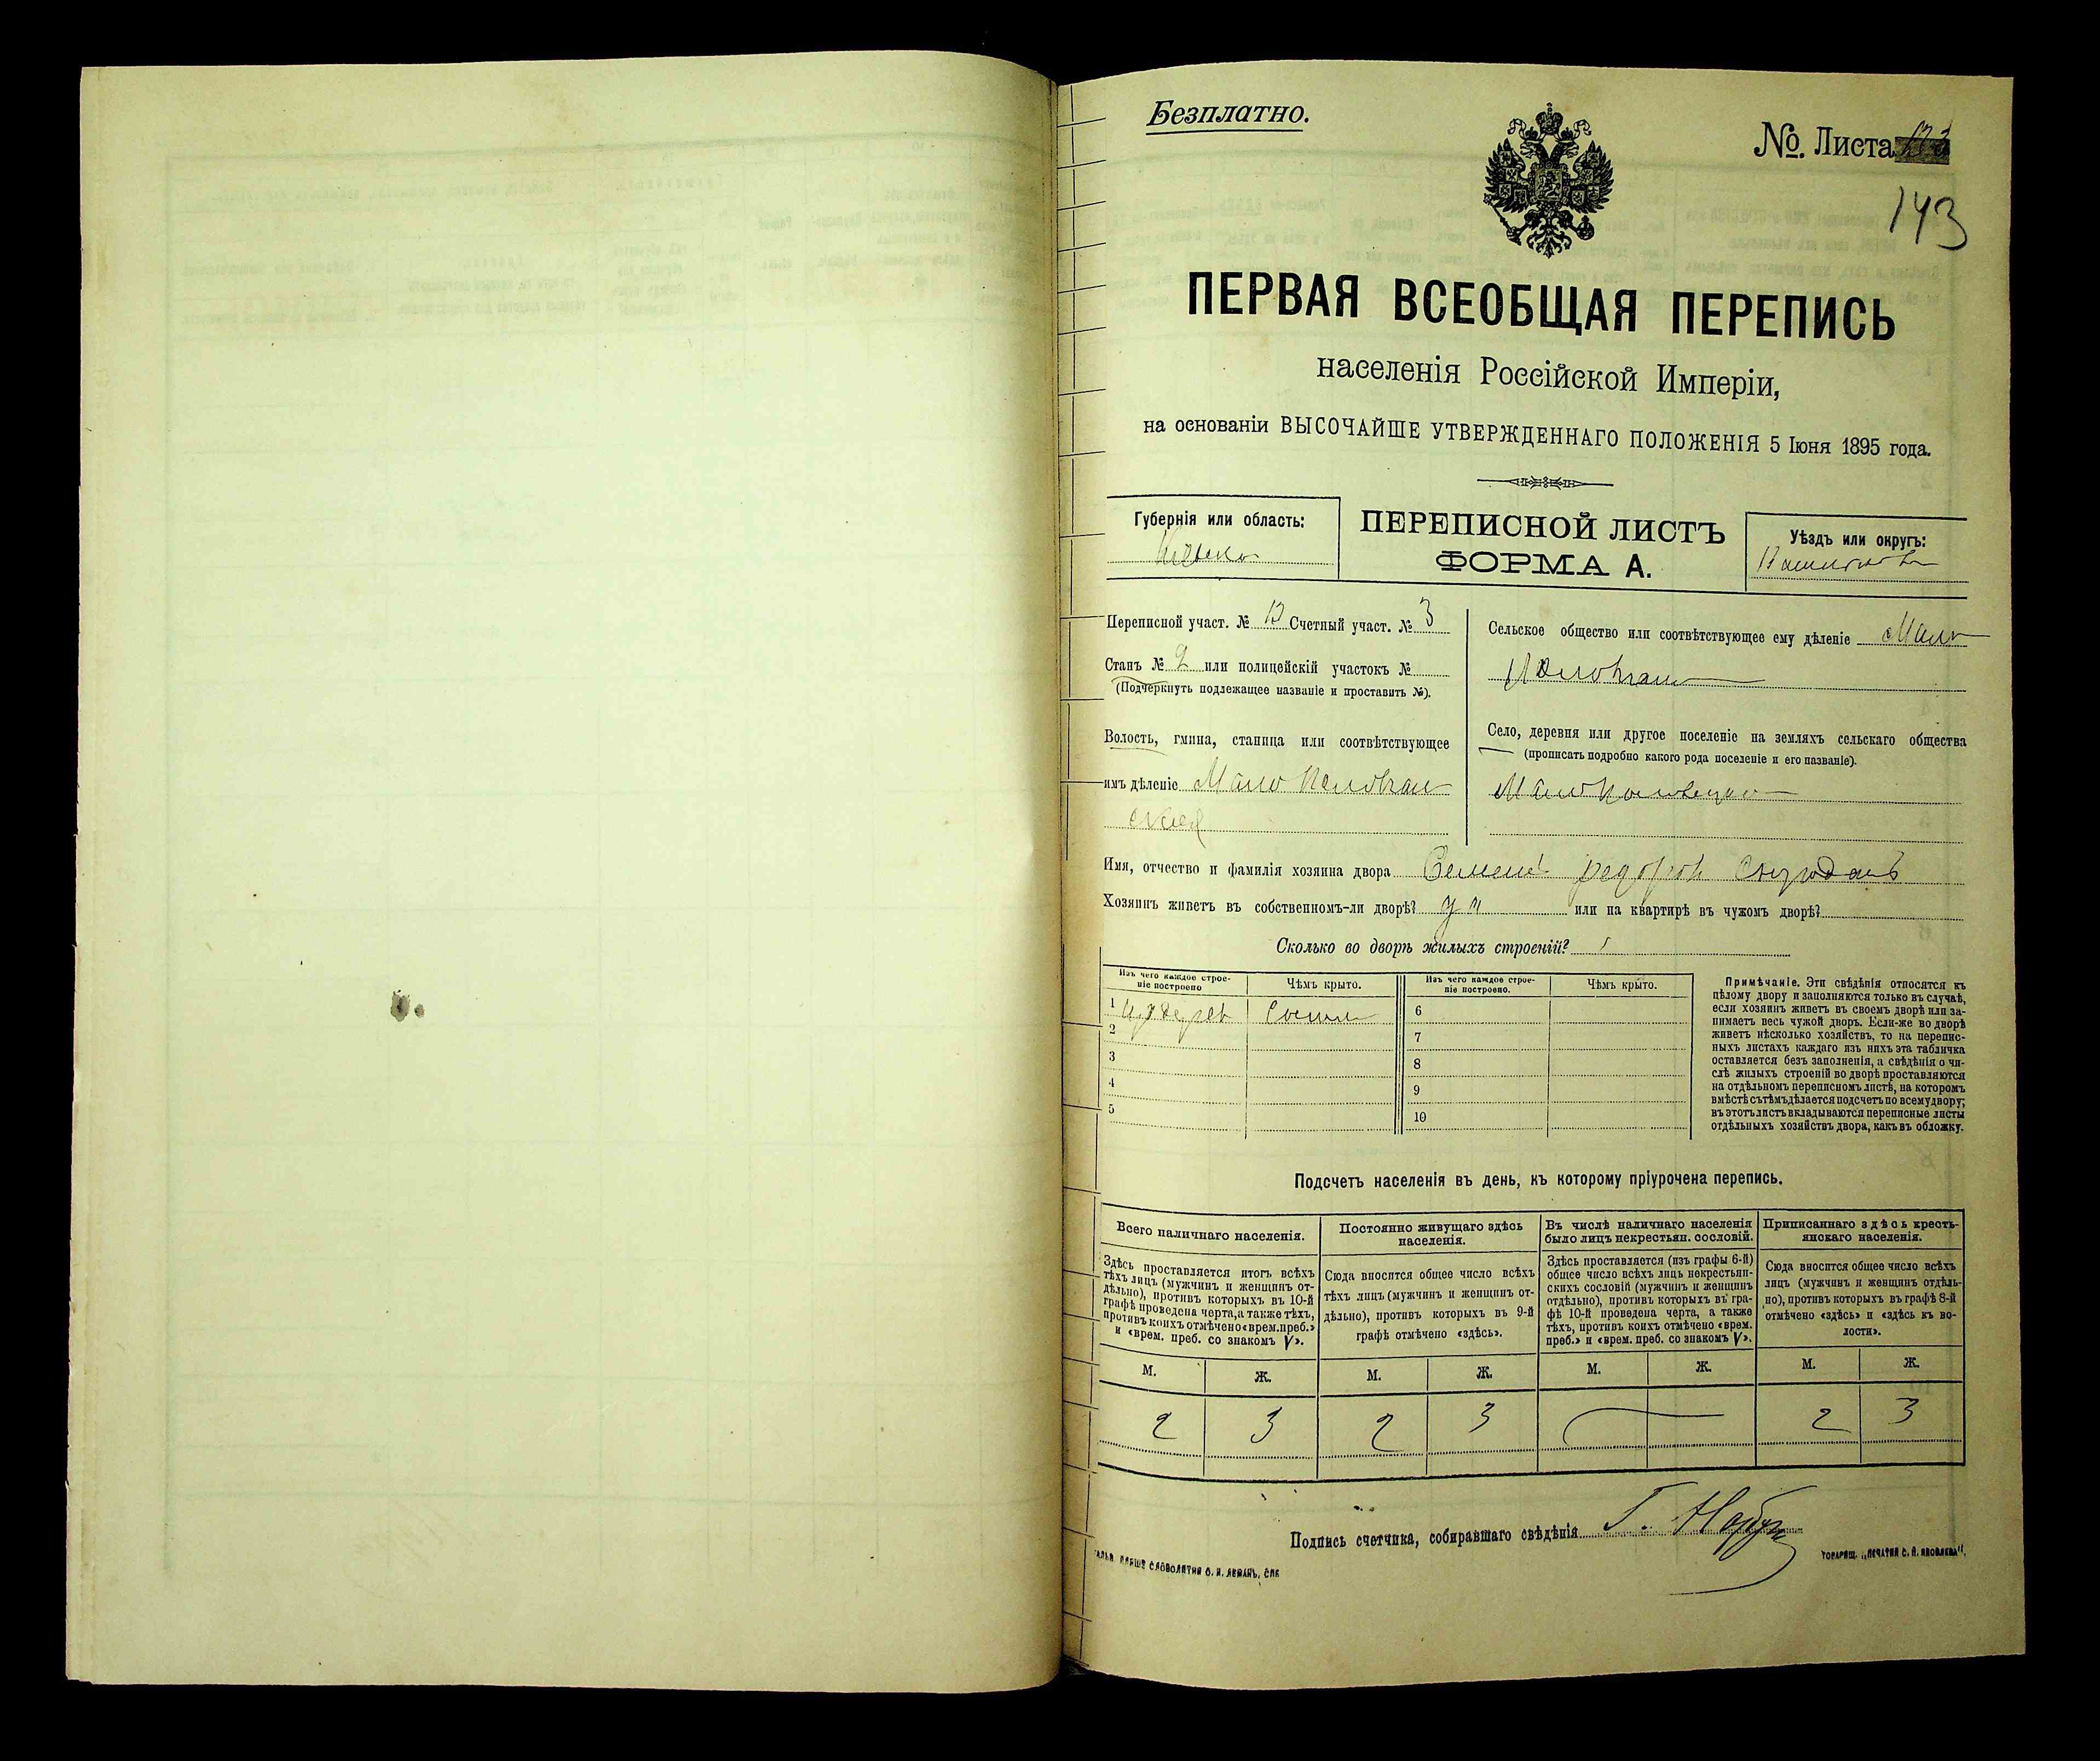 Безплатно.
№. Листа
143
ПЕРВАЯ ВСЕОБЩАЯ ПЕРЕПИСЬ
населенія Россійской Имперіи,
на основаніи ВЫСОЧАЙШЕ УТВЕРЖДЕННАГО ПОЛОЖЕНІЯ 5 Іюня 1895 года.
Губернія или область:
ПЕРЕПИСНОЙ ЛИСТЪ
ФОРМА А.
Уѣздъ или округъ:
Переписной участ. № 13 Счетный участ. № 3
Станъ № 2 или полицейскій участокъ №
(Подчеркнуть подлежащее названіе и проставить №).
Волость, гмина, станица или соотвѣтствующее
имъ дѣленіе Мало
Сельское общество или соотвѣтствующее ему дѣленіе Мало
Село, деревня или другое поселеніе на земляхъ сельскаго общества
(прописать подробно какого рода поселеніе и его названіе).
Имя, отчество и фамилія хозяина двора Семенъ
Хозяинъ живетъ въ собственномъ-ли дворѣ? или на квартирѣ въ чужомъ дворѣ?
Сколько во дворѣ жилыхъ строеній? 1
Изъ чего каждое строе-
ніе построено
Чѣмъ крыто.
Изъ чего каждое строе-
ніе построено.
Чѣмъ крыто.
1
2
3
4
5
6
7
8
9
10
Примѣчаніе. Эти свѣдѣнія относятся къ
цѣлому двору и заполняются только въ случаѣ,
если хозяинъ живетъ въ своемъ дворѣ или за-
нимаетъ весь чужой дворъ. Если-же во дворѣ
живетъ нѣсколько хозяйствъ, то на перепис-
ныхъ листахъ каждаго изъ нихъ эта табличка
оставляется безъ заполненія, а свѣдѣнія о чи-
слѣ жилыхъ строеній во дворѣ проставляются
на отдѣльномъ переписномъ листѣ, на которомъ
вмѣстѣ съ тѣмъ дѣлается подсчетъ по всему двору;
въ этотъ листъ вкладываются переписные листы
отдѣльныхъ хозяйствъ двора, какъ въ обложку.
Подсчетъ населенія въ день, къ которому пріурочена перепись.
Всего наличнаго населенія.
Здѣсь проставляется итогъ всѣхъ
тѣхъ лицъ (мужчинъ и женщинъ от-
дѣльно), противъ которыхъ въ 10-й
графѣ проведена черта, а также тѣхъ,
противъ коихъ отмѣчено «врем. преб.»
и «врем. преб. со знакомъ V».
Постоянно живущаго здѣсь
населенія.
Сюда вносится общее число всѣхъ
тѣхъ лицъ (мужчинъ и женщинъ от-
дѣльно), противъ которыхъ въ 9-й
графѣ отмѣчено «здѣсь».
Въ числѣ наличнаго населенія
было лицъ некрестьян. сословій.
Здѣсь проставляется (изъ графы 6-й)
общее число всѣхъ лицъ некрестьян-
скихъ сословій (мужчинъ и женщинъ
отдѣльно), противъ которыхъ въ гра-
фѣ 10-й проведена черта, а также
тѣхъ, противъ коихъ отмѣчено «врем.
преб.» и «врем. преб. со знакомъ V».
Приписаннаго здѣсь кресть-
янскаго населенія.
Сюда вносится общее число всѣхъ
лицъ (мужчинъ и женщинъ отдѣль-
но), противъ которыхъ въ графѣ 8-й
отмѣчено «здѣсь» и «здѣсь къ во-
лости».
М. Ж. М. Ж. М. Ж. М. Ж.
2 3 2 3 — 2 3
Подпись счетчика, собиравшаго свѣдѣнія Г.
ТОВАРИЩ. „ПЕЧАТНЯ С. П. ЯКОВЛЕВА".